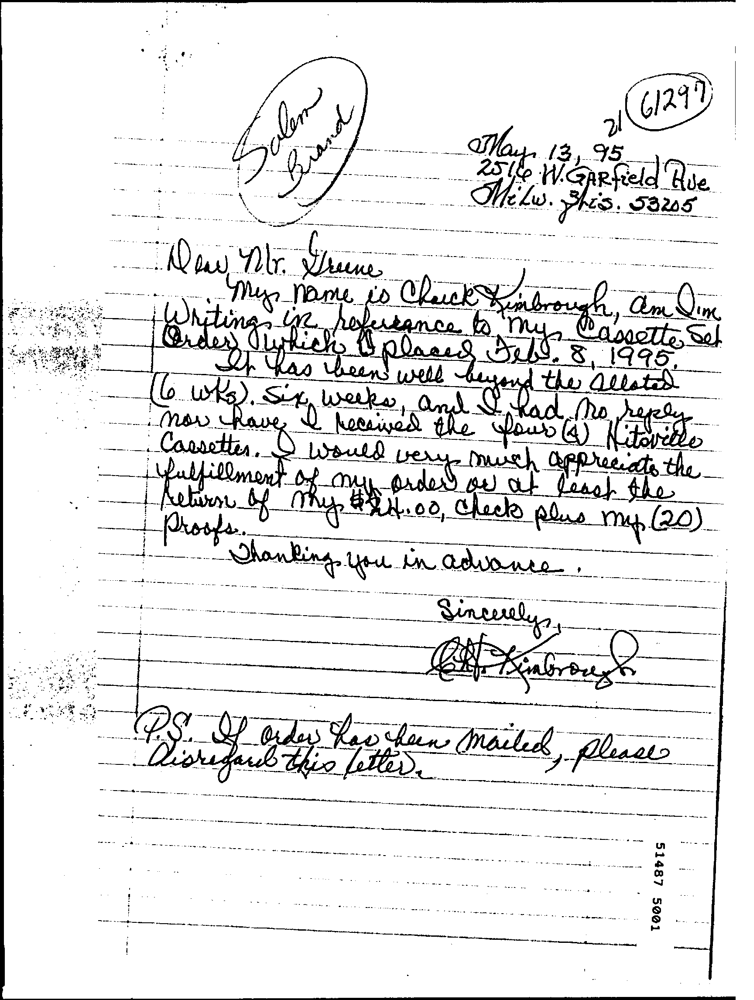 Salem
Brand
21
61297
May 13, 95
2516 W. GARfield Ave
Milw. Wis. 53205
Dear Mr. Greene
My name is Chuck Kimbrough, am I'm
Writing in referance to my Cassette Set
Order which I placed Feb. 8, 1995.
It has been well beyond the allotted
(6 wks). Six weeks, and I had no reply
nor have I received the four (4) Hitsville
Cassettes. I would very much appreciate the
fulfillment of my order or at least the
return of my $24.00, check plus my (20)
proofs.
Thanking you in advance.
Sincerely,
C.H. Kimbrough
P.S. If order has been mailed, please
disregard this letter.
51487 5001